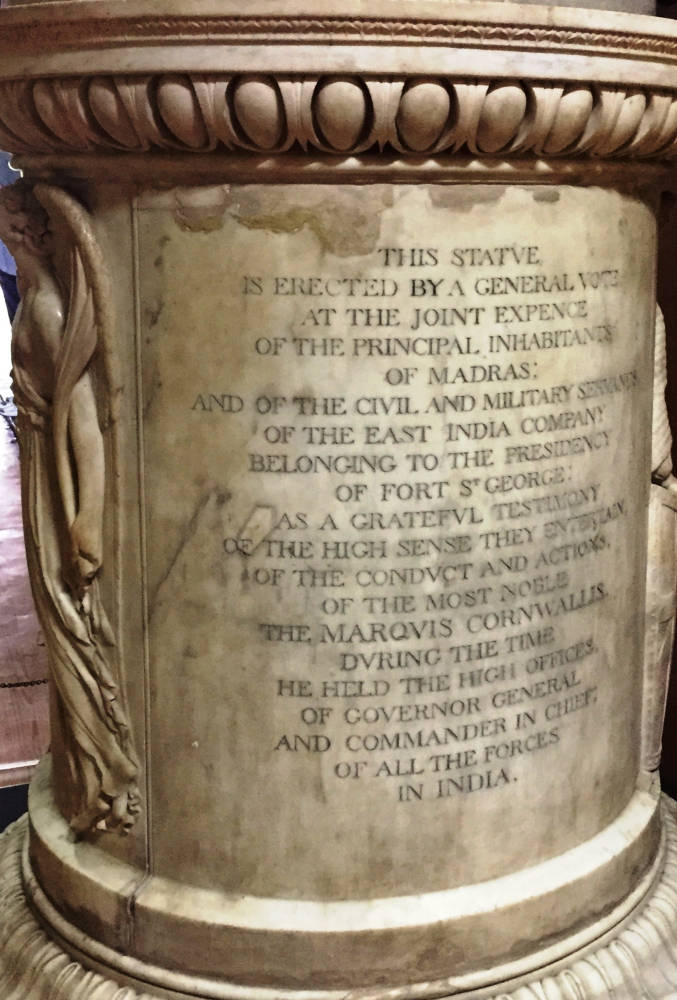 THIS STATVE,
IS ERECTED BY A GENERAL VOTE
AT THE JOINT EXPENCE
OF THE PRINCIPAL INHABITANTS
OF MADRAS:
AND OF THE CIVIL AND MILITARY SERVANTS
OF THE EAST INDIA COMPANY
BELONGING TO THE PRESIDENCY
OF FORT Sᵀ GEORGE:
AS A GRATEFVL TESTIMONY
OF THE HIGH SENSE THEY ENTERTAIN,
OF THE CONDVCT AND ACTIONS,
OF THE MOST NOBLE
THE MARQVIS CORNWALLIS,
DVRING THE TIME
HE HELD THE HIGH OFFICES,
OF GOVERNOR GENERAL
AND COMMANDER IN CHIEF,
OF ALL THE FORCES
IN INDIA.